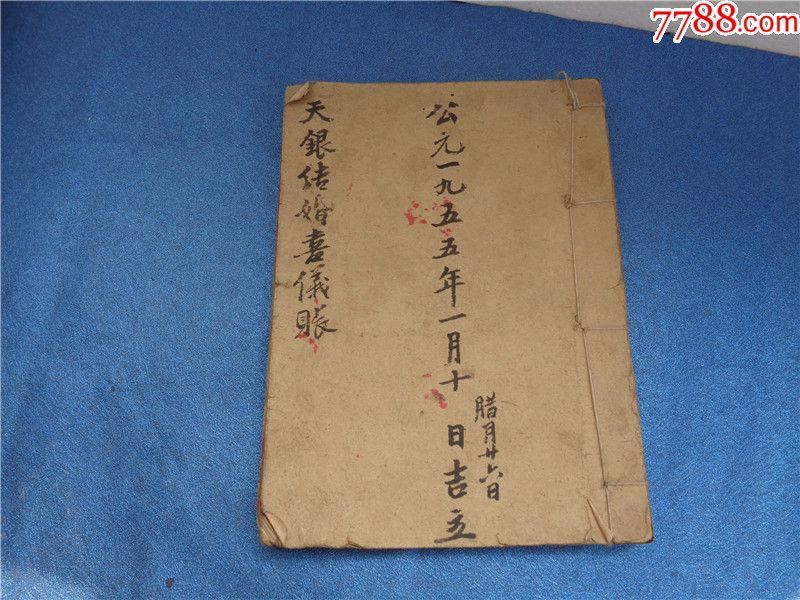 7788.com
公元一九五五年一月十日吉立
腊月廿六日
天銀结婚喜儀賬